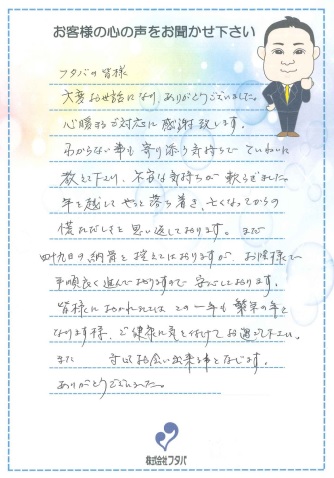 お客様の心の声をお聞かせ下さい
フタバの皆様
大変お世話になり、ありがとうございました。
心暖まるご対応に感謝致します。
わからない事も寄り添う気持ちで ていねいに
教えて下さり、不安な気持ちが 軟らぎました。
年を越して やっと落ち着き、亡くなってからの
慌ただしさを思い返しております。 まだ
四十九日の納骨を控えてはおりますが お陰様で
手順良く進んでおりますので 安心しております。
皆様におかれましては この一年も 繁栄の年と
なります様、ご健康に気を付けて お過ごし下さい。
また お会い出来る事と存じます。
ありがとうございました。
株式会社フタバ